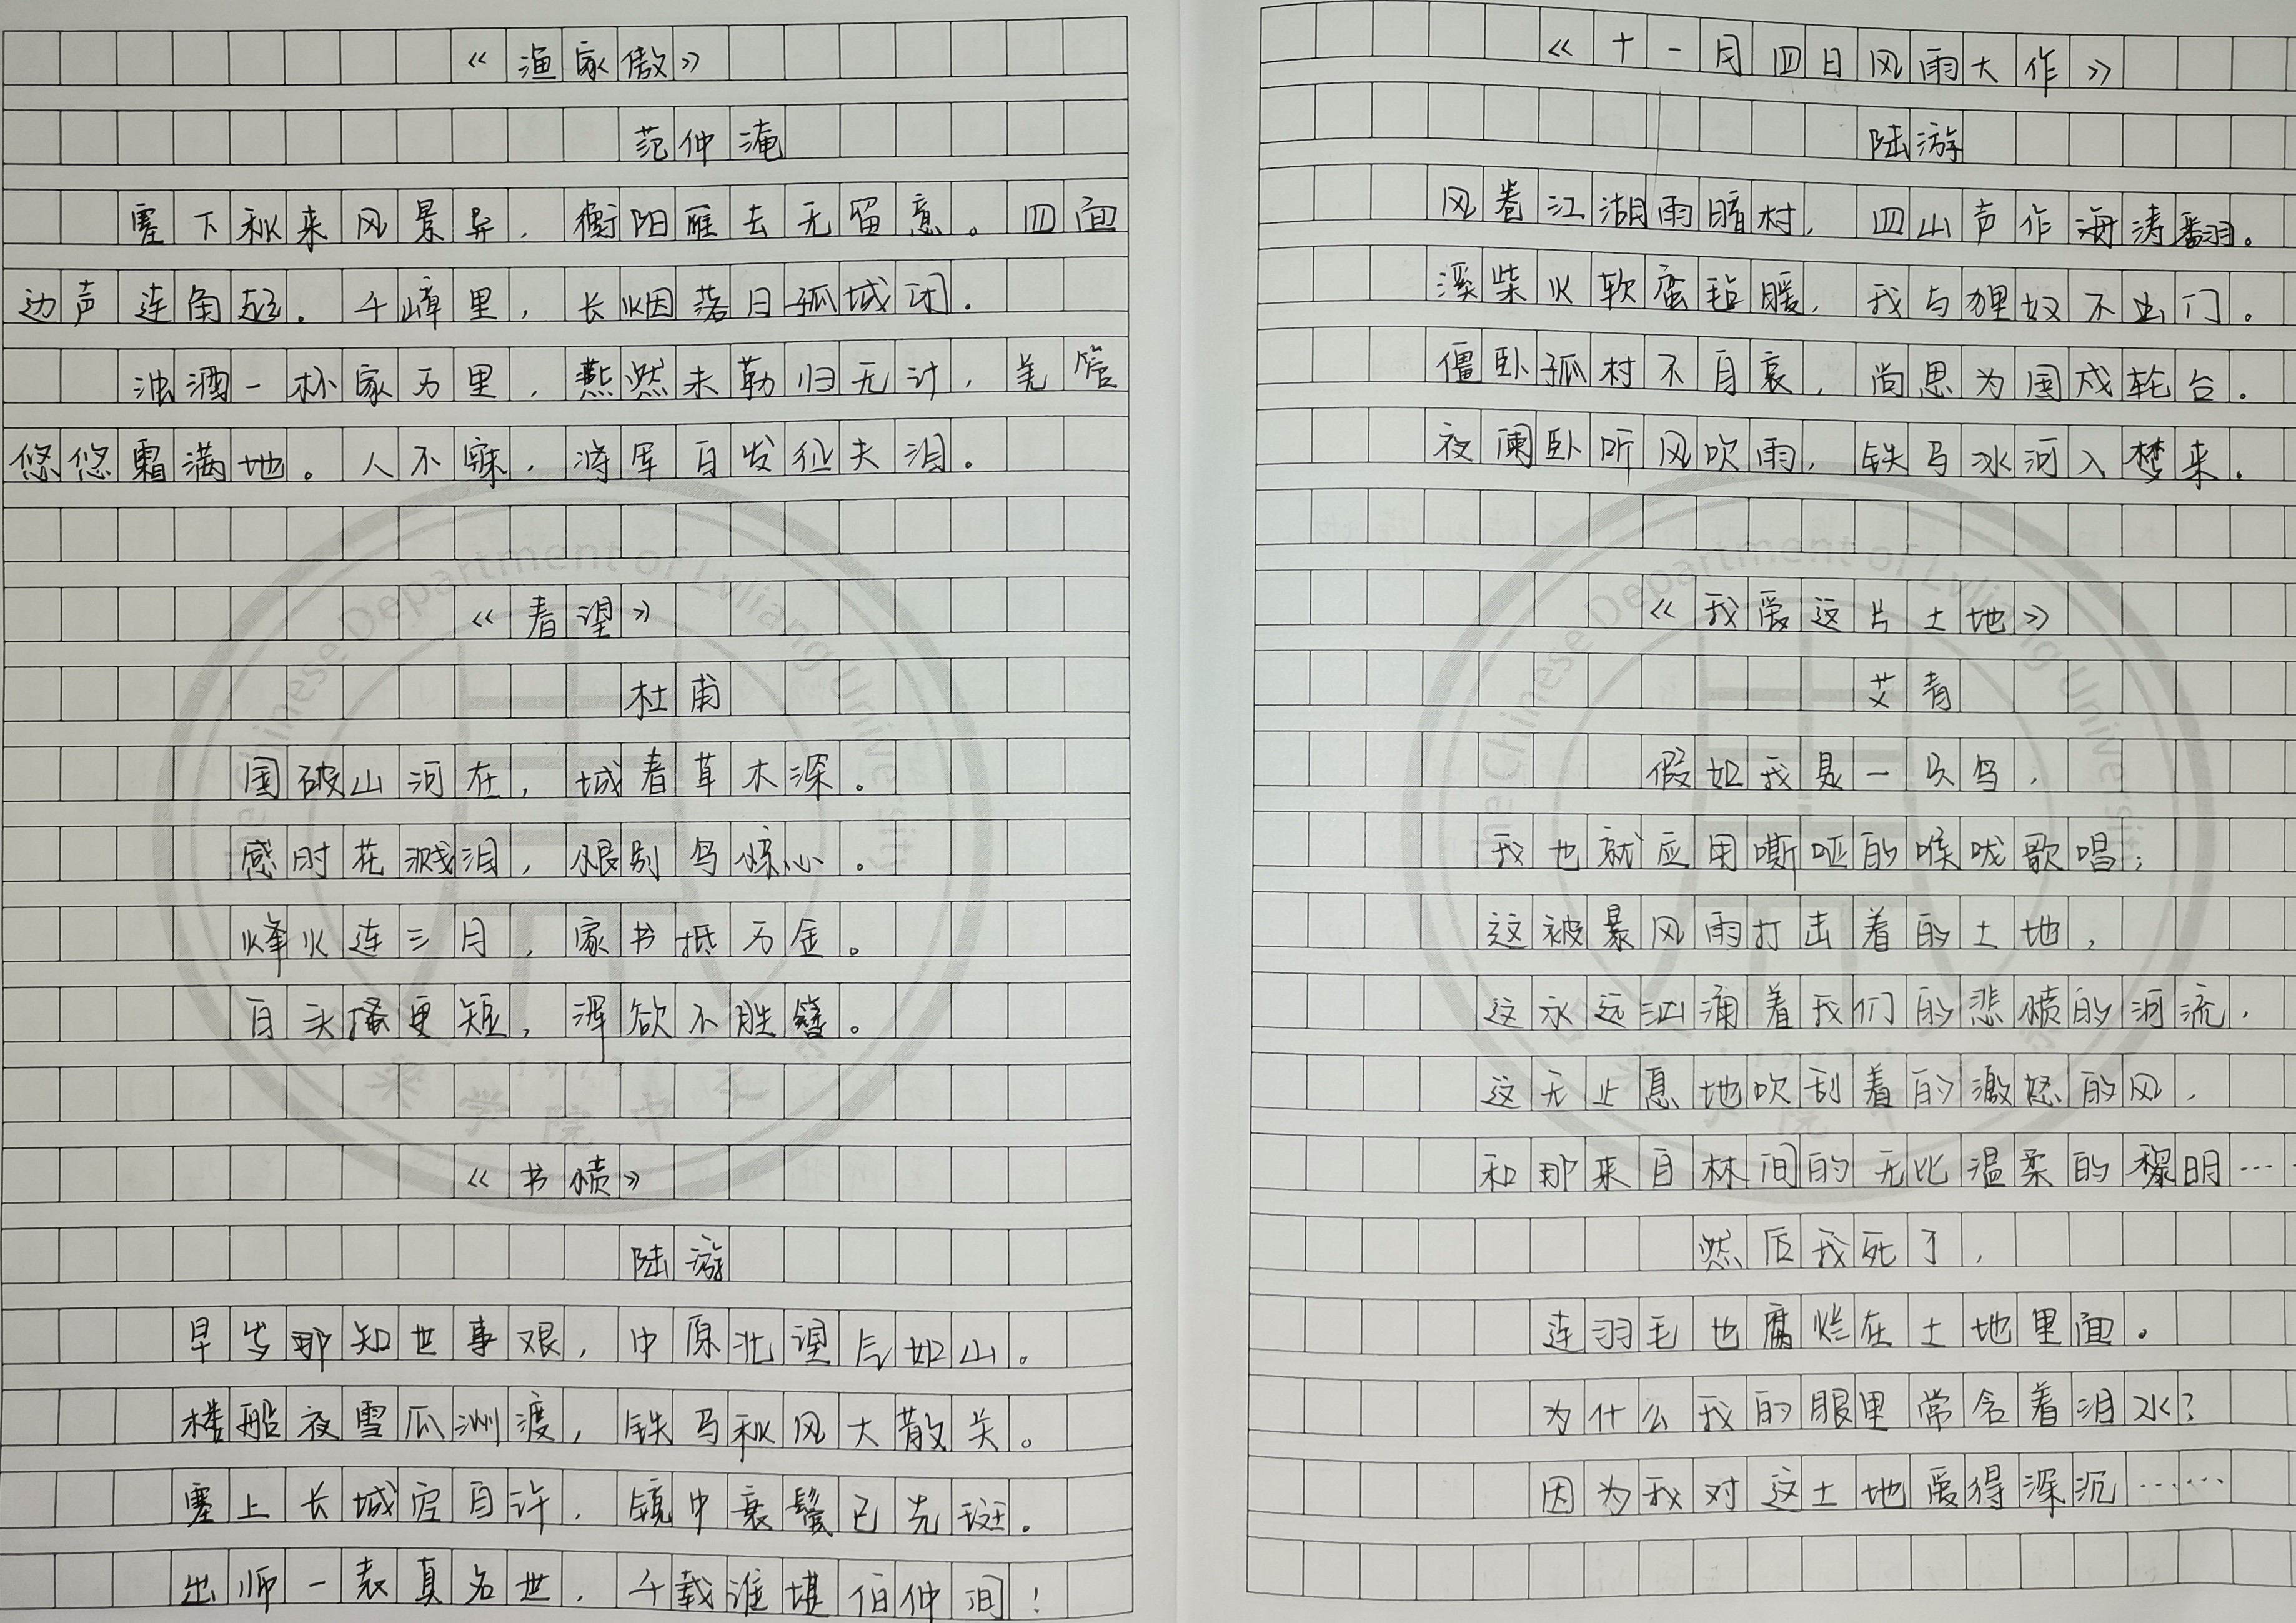 《渔家傲》
范仲淹
塞下秋来风景异，衡阳雁去无留意。四面
边声连角起。千嶂里，长烟落日孤城闭。
浊酒一杯家万里，燕然未勒归无计，羌管
悠悠霜满地。人不寐，将军白发征夫泪。
《春望》
杜甫
国破山河在，城春草木深。
感时花溅泪，恨别鸟惊心。
烽火连三月，家书抵万金。
白头搔更短，浑欲不胜簪。
《书愤》
陆游
早岁那知世事艰，中原北望气如山。
楼船夜雪瓜洲渡，铁马秋风大散关。
塞上长城空自许，镜中衰鬓已先斑。
出师一表真名世，千载谁堪伯仲间！
《十一月四日风雨大作》
陆游
风卷江湖雨暗村，四山声作海涛翻。
溪柴火软蛮毡暖，我与狸奴不出门。
僵卧孤村不自哀，尚思为国戍轮台。
夜阑卧听风吹雨，铁马冰河入梦来。
《我爱这片土地》
艾青
假如我是一只鸟，
我也就应用嘶哑的喉咙歌唱；
这被暴风雨打击着的土地，
这永远汹涌着我们的悲愤的河流，
这无止息地吹刮着的激怒的风，
和那来自林间的无比温柔的黎明……
然后我死了，
连羽毛也腐烂在土地里面。
为什么我的眼里常含着泪水？
因为我对这土地爱得深沉……
The Chinese Department of Lvliang University
吕梁学院中文系
The Chinese Department of Lvliang University